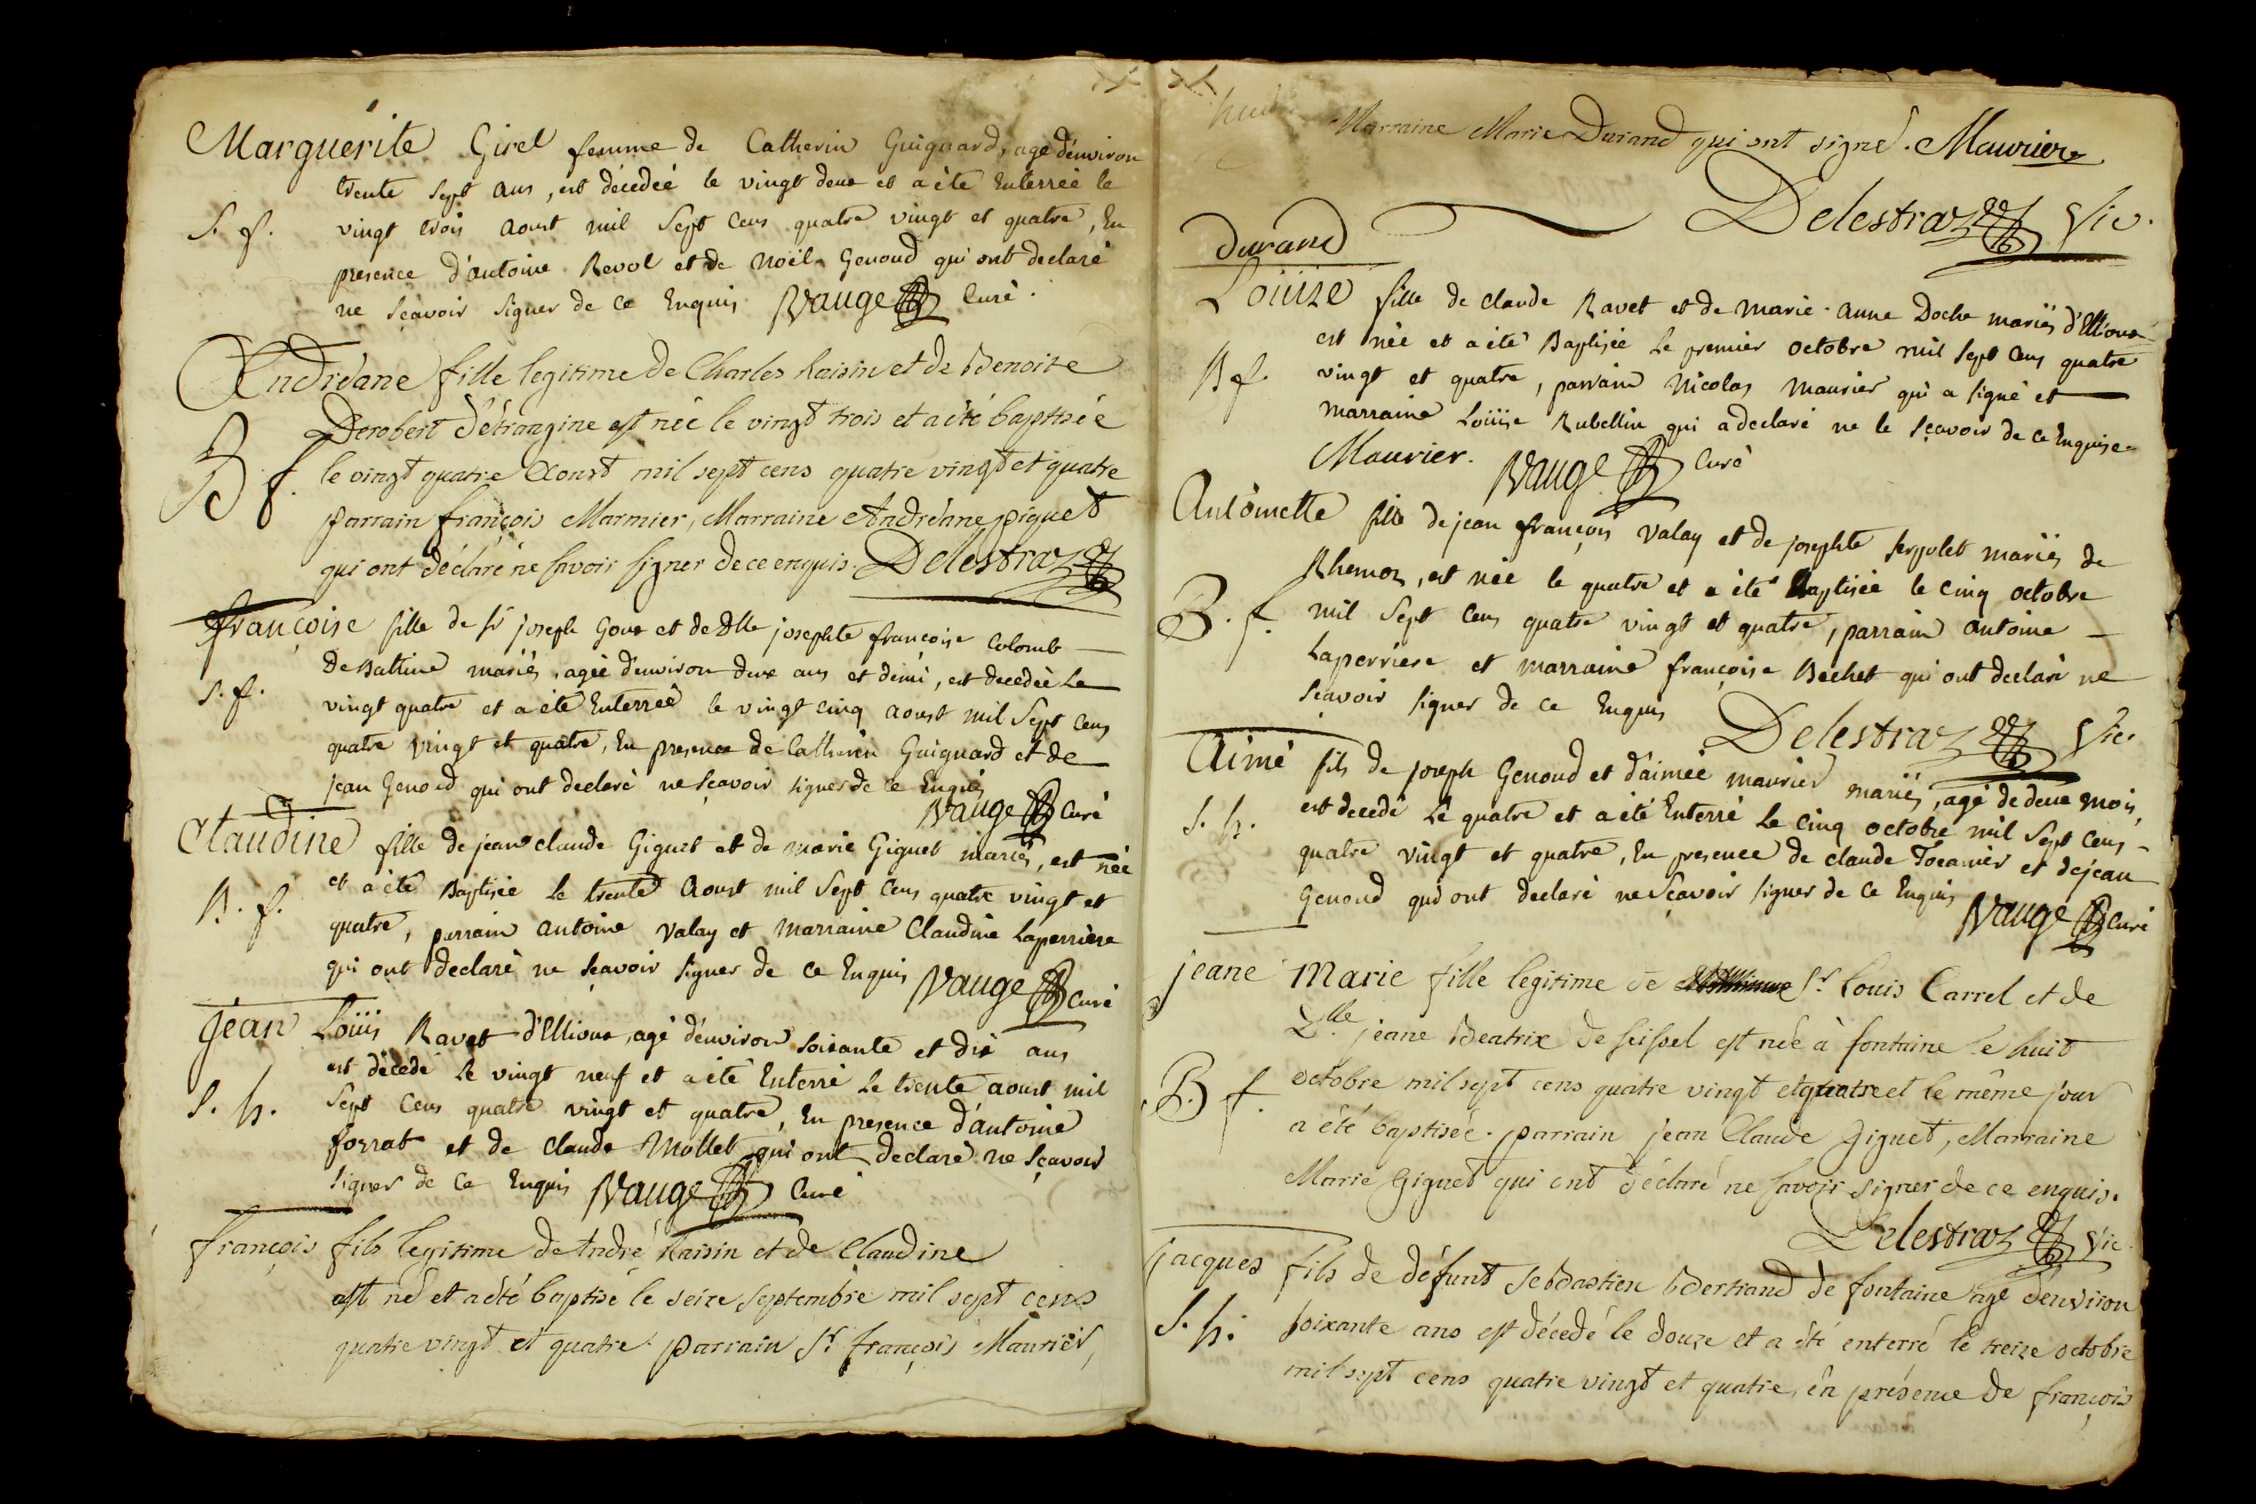 Marguerite Girel femme de Catherin Guignard, agé d'environ
trente sept ans, est décedéé le vingt deux et a été Enterréé le
S. f. vingt trois aoust mil Sept Cens quatre vingt et quatre, En
presence d'antoine Revol et de Noël Genoud qui ont declaré
ne sçavoir signer de ce Enquis Vauge Curé.
Andréane fille legitime de Charles Raisin et de Benoite
Derobert d'étrangine est née le vingt trois et a été baptisée
B. f. le vingt quatre Aoust mil sept cens quatre vingt et quatre
parrain françois Marmier, Marraine Andréane piguet
qui ont déclaré ne savoir signer de ce enquis. Delestraz
françoise fille de sr joseph Gous et de dlle josephte françoise Colomb
De Battine mariés, agéé d'environ deux ans et demi, est decedéé Le
S. f. vingt quatre et a été Enterréé le vingt cinq aoust mil Sept Cens
quatre vingt et quatre, En presence de Catherin Guignard et de
jean Genoud qui ont declaré ne sçavoir signer de ce Enquis
Vauge Curé
Claudine fille de jean claude Giguet et de marie Giguet mariés, est née
B. f. et a été Baptisée Le trente Aoust mil Sept Cens quatre vingt et
quatre, parrain antoine Valay et marraine Claudine Laperriere
qui ont declaré ne sçavoir signer de ce Enquis Vauge Curé
jean Loüis Ravet d'Ellioux, agé d'environ soixante et dix ans
est décédé Le vingt neuf et a été Enterré Le trente aoust mil
S. h. Sept Cens quatre vingt et quatre, En presence d'antoine
forrat et de Claude Mollet qui ont declaré ne sçavoir
signer de ce Enquis Vauge Curé
françois fils legitime de André Raisin et de Claudine
est né et a été baptisé le seize septembre mil sept cens
quatre vingt et quatre. parrain Sr françois Maurier,
Marraine Marie Durand qui ont signé. Maurier
Delestraz Vic.
Durand
Loüize fille de claude Ravet et de marie-anne Doche mariés d'Ellioux
est née et a été Baptisée Le premier octobre mil sept Cens quatre
B f. vingt et quatre, parrain Nicolas Maurier qui a signé et
marraine Loüise Rubellin qui a declaré ne le sçavoir de ce Enquise
Maurier. Vauge Curé
Antoinette fille de jean françois Valay et de josephte serpolet mariés de
Rhemoz, est née le quatre et a été Baptisée le cinq octobre
B. f. mil Sept Cens quatre vingt et quatre, parrain antoine
Laperriere et marraine françoise Bechet qui ont declaré ne
sçavoir signer de ce Enquis
Delestraz Vic.
Aimé fils de joseph Genoud et d'aimée maurier mariés, agé de deux mois,
S. h. est decedé Le quatre et a été Enterré Le cinq octobre mil Sept Cens
quatre vingt et quatre, En presence de claude Tocanier et de jean
Genoud qui ont declaré ne sçavoir signer de ce Enquis
Vauge Curé
jeane Marie fille legitime de Sr. Louis Carrel et de
Dlle. jeane Beatrix de seissel est née à fontaine le huit
B. f. octobre mil sept cens quatre vingt et quatre et le même jour
a été baptisée. parrain jean Claude Giguet, Marraine
Marie Giguet qui ont déclaré ne savoir signer de ce enquis.
Delestraz Vic.
jacques fils de défunt sebastien Bertrand de fontaine agé d'environ
S. h. soixante ans est décedé le douze et a été enterré le treize octobre
mil sept cens quatre vingt et quatre, en présence de françois